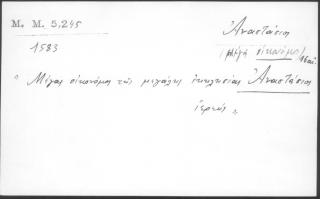 M. M. 5,245
Ἀναστάσιος
1583
(μέγας οἰκονόμος)
16 αἰ.
" Μέγας οἰκονόμος τῆς μεγάλης ἐκκλησίας Ἀναστάσιος
ἱερεύς "